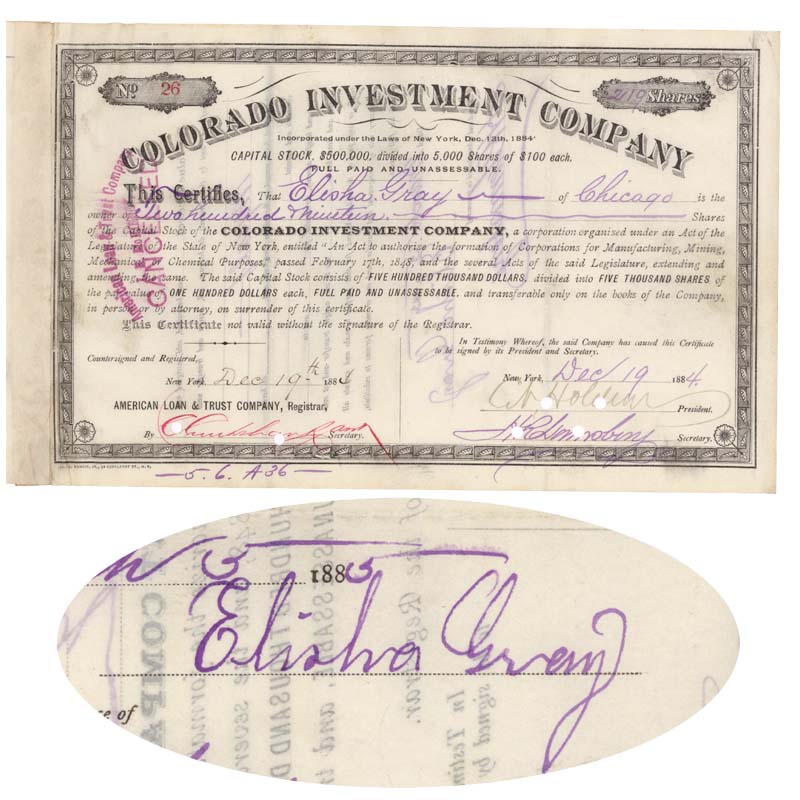 No 26
219 Shares
COLORADO INVESTMENT COMPANY
Incorporated under the Laws of New York, Dec. 13th, 1884
CAPITAL STOCK, $500,000, divided into 5,000 Shares of $100 each.
FULL PAID AND UNASSESSABLE.
This Certifies, That Elisha Gray of Chicago is the
owner of Two hundred Nineteen Shares
of the Capital Stock of the COLORADO INVESTMENT COMPANY, a corporation organised under an Act of the
Legislature of the State of New York, entitled "An Act to authorise the formation of Corporations for Manufacturing, Mining,
Mechanical or Chemical Purposes," passed February 17th, 1848, and the several Acts of the said Legislature, extending and
amending the same. The said Capital Stock consists of FIVE HUNDRED THOUSAND DOLLARS, divided into FIVE THOUSAND SHARES of
the par value of ONE HUNDRED DOLLARS each, FULL PAID AND UNASSESSABLE, and transferable only on the books of the Company,
in person or by attorney, on surrender of this certificate.
This Certificate not valid without the signature of the Registrar.
American Loan & Trust Company
CANCELLED
In Testimony Whereof, the said Company has caused this Certificate
to be signed by its President and Secretary.
Countersigned and Registered,
New York, Dec 19th 1884
New York, Dec 19 1884.
AMERICAN LOAN & TRUST COMPANY, Registrar,
President.
By Secretary.
Secretary.
5.6. A36
1885
Elisha Gray
ce of